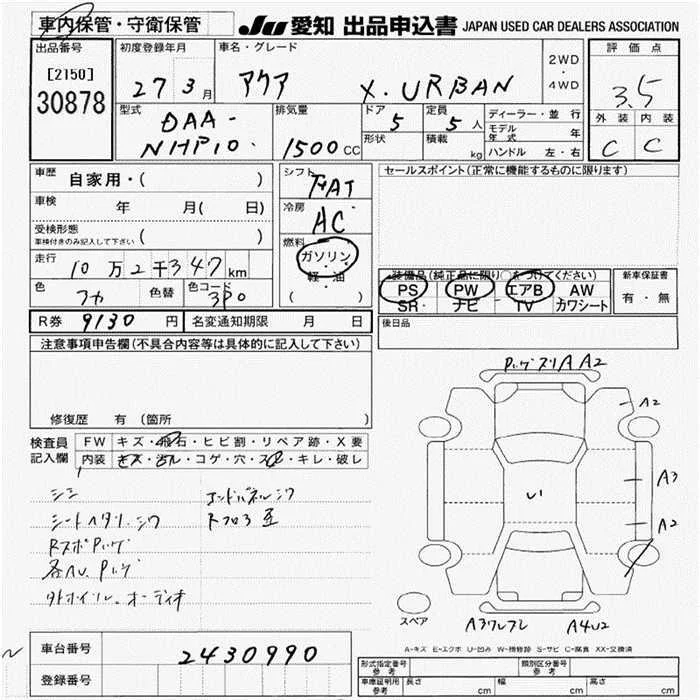 車内保管・守衛保管
JU 愛知 出品申込書 JAPAN USED CAR DEALERS ASSOCIATION
出品番号
[2150]
30878
初度登録年月
27 3月
車名・グレード
アクア X. URBAN
2WD
・
4WD
評価点
3.5
外装 内装
C C
型式
DAA-
NHP10.
排気量
1500 CC
ドア
5
形状
定員
5人
積載
kg
ディーラー・並行
モデル年式 年
ハンドル 左・右
車歴
自家用・( )
車検
年 月( 日)
受検形態
車検付きのみ記入して下さい ( )
走行
10万2千347km
色
色替
色コード
3P0
シフト
FAT
冷房
AC
燃料
ガソリン
・
軽・油
・
( )
セールスポイント(正常に機能するものに限ります)
装備品(純正品に限り○をつけてください)
PS PW エアB AW
SR ナビ TV カワシート
新車保証書
有・無
後日品
R券 9130 円
名変通知期限 月 日
注意事項申告欄(不具合内容等は具体的に記入して下さい)
修復歴 有 (箇所 )
検査員
記入欄
FW キズ・飛石・ヒビ割・リペア跡・X要
内装 キズ・汚ル・コゲ・穴・スレ・キレ・破レ
シミ
シートヘタリ、シワ
エンドパネルシワ
A A2
A2
A3
A2
A4U2
スペア
A-キズ E-エクボ U-凹み W-補修跡 S-サビ C-腐食 XX-交換済
車台番号
2430990
登録番号
形式指定番号
参考
類別区分番号
参考
車庫証明用
参考
長さ cm
幅 cm
高さ cm